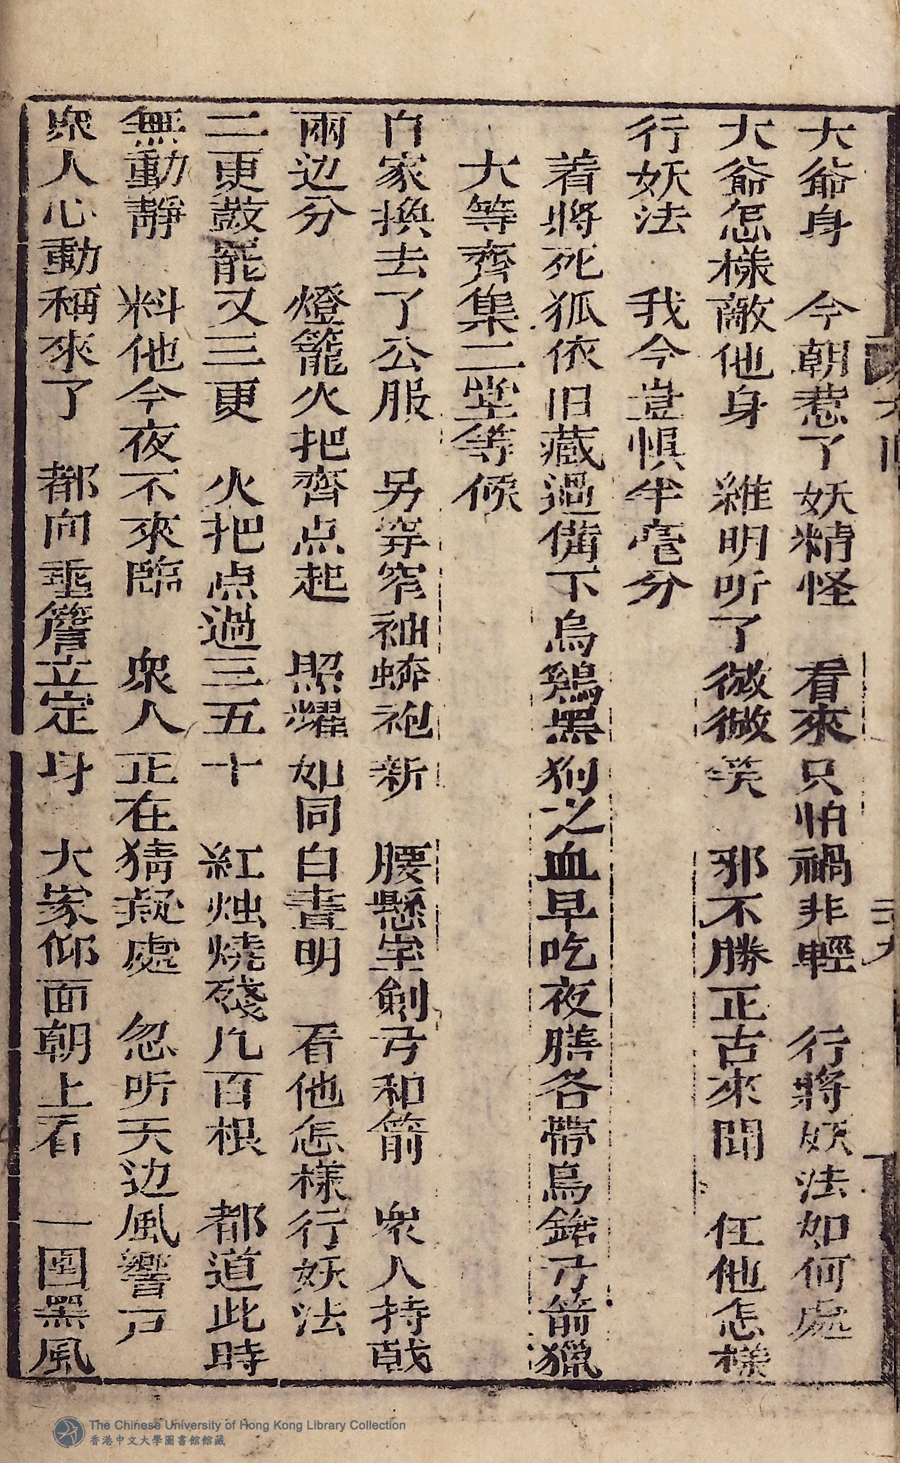 大爺身　今朝惹了妖精怪　看來只怕禍非輕　行將妖法如何處
大爺怎樣敵他身　維明听了微微笑　邪不勝正古來聞　任他怎樣
行妖法　我今豈惧半毫分
着將死狐依旧藏過備下烏鷄黑狗之血早吃夜膳各帶鳥鎗弓箭獵
犬等齊集二堂等候
白家換去了公服　另穿窄袖蟒袍新　腰懸寶劍弓和箭　衆人持戟
兩边分　燈籠火把齊点起　照耀如同白晝明　看他怎樣行妖法
二更鼓罷又三更　火把点過三五十　紅烛燒殘几百根　都道此時
無動靜　料他今夜不來臨　衆人正在猜疑處　忽听天边風響戸
衆人心動稱來了　都向垂簷立定身　大家仰面朝上看　一團黑風
The Chinese University of Hong Kong Library Collection
香港中文大學圖書館館藏